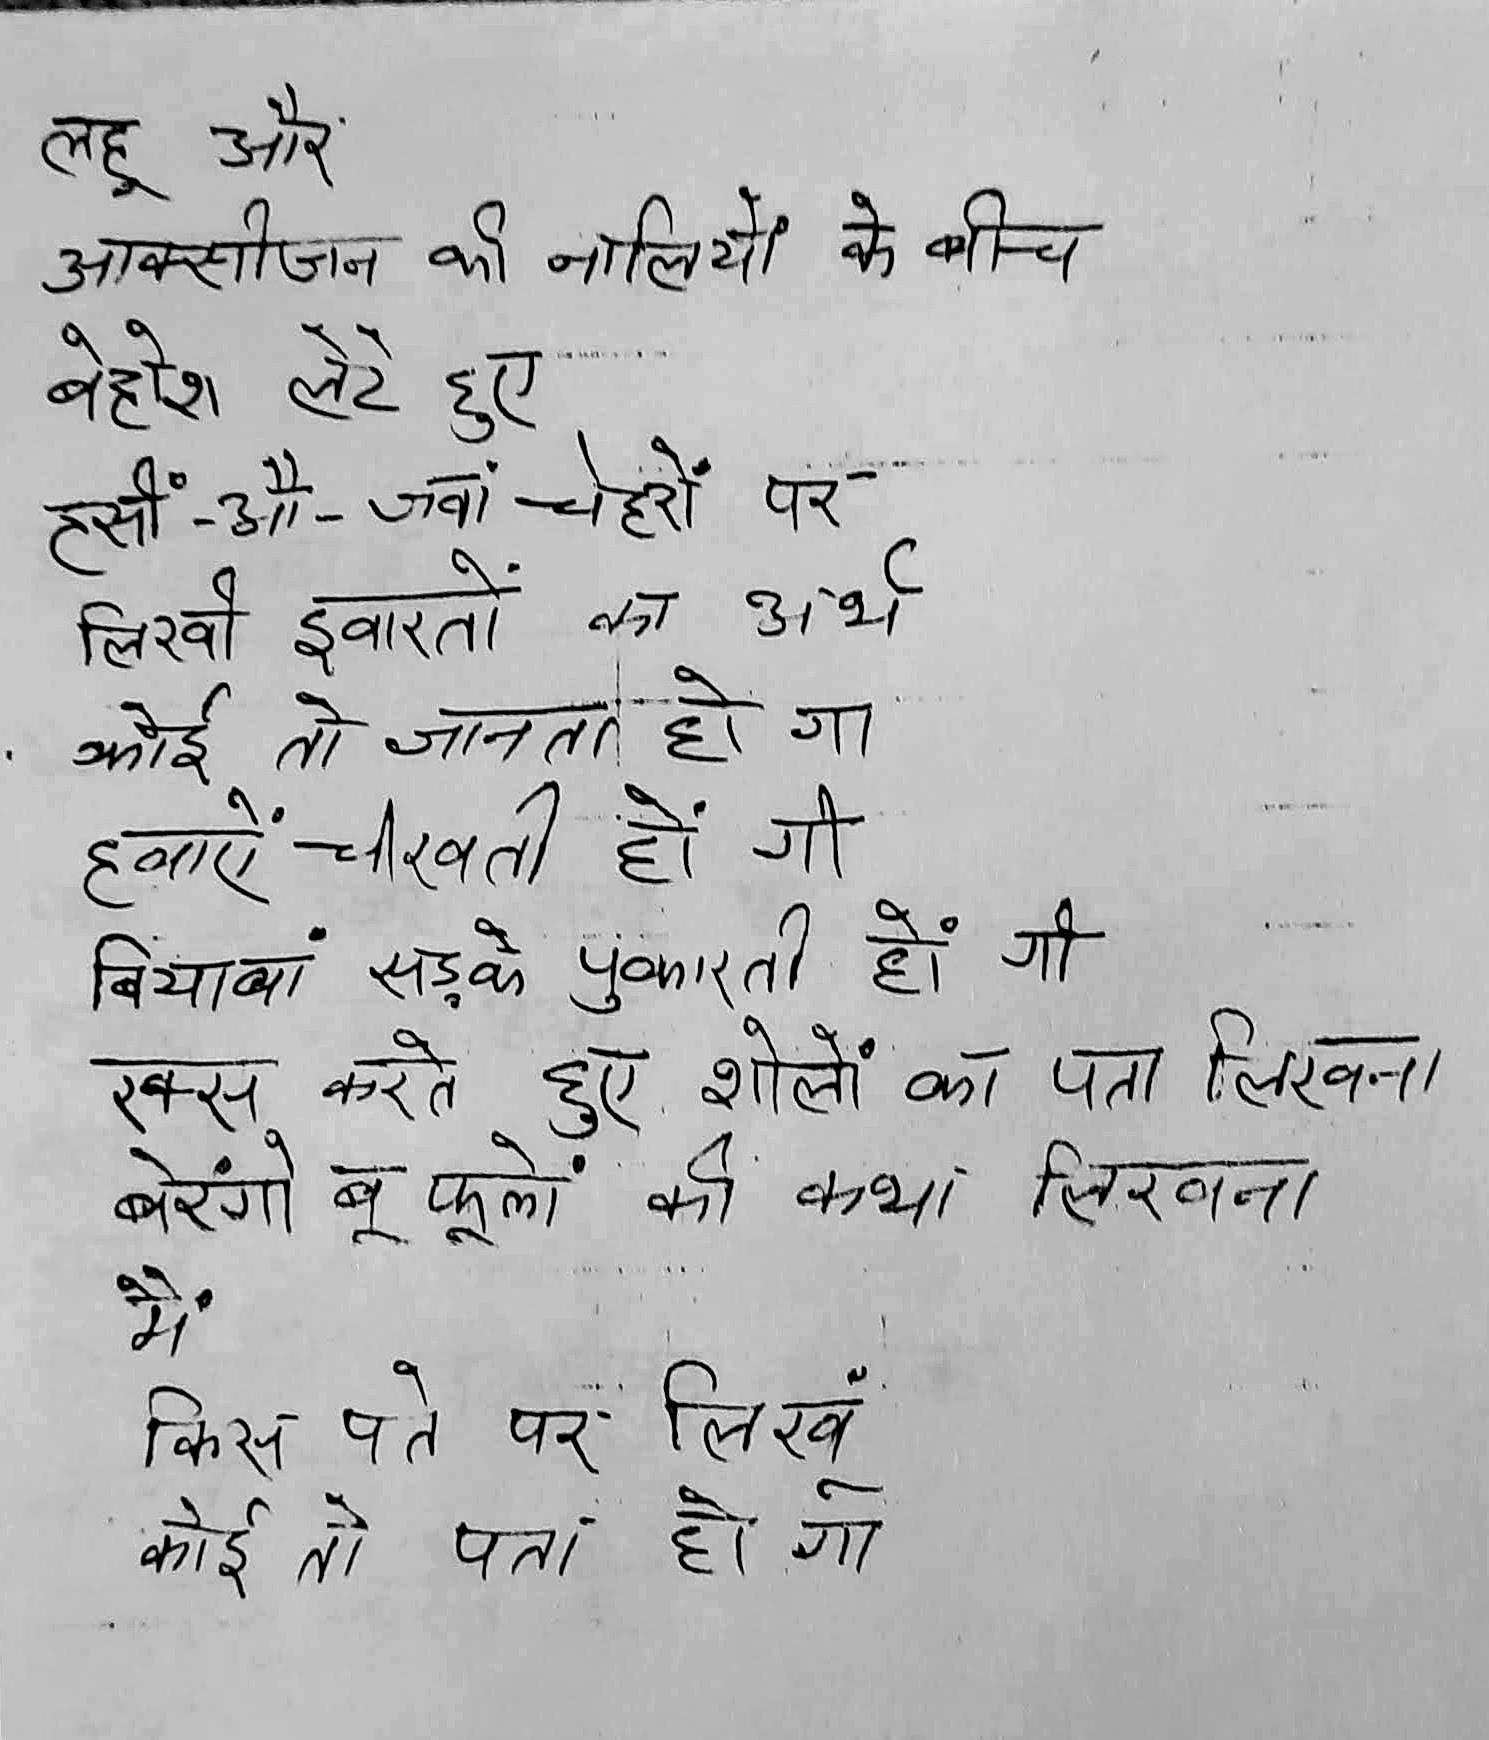 लहू और
आक्सीजन की नालियों के बीच
बेहोश लेटे हुए
हसीं-औ-जवां चेहरों पर
लिखी इबारतों का अर्थ
कोई तो जानता हो गा
हवाएें चीखती हों गी
बियाबां सड़कें पुकारती हों गी
रक्स करते हुए शोलों का पता लिखना
बेरंगो बू फूलों की कथा लिखना
मैं
किस पते पर लिखूं
कोई तो पता हो गा